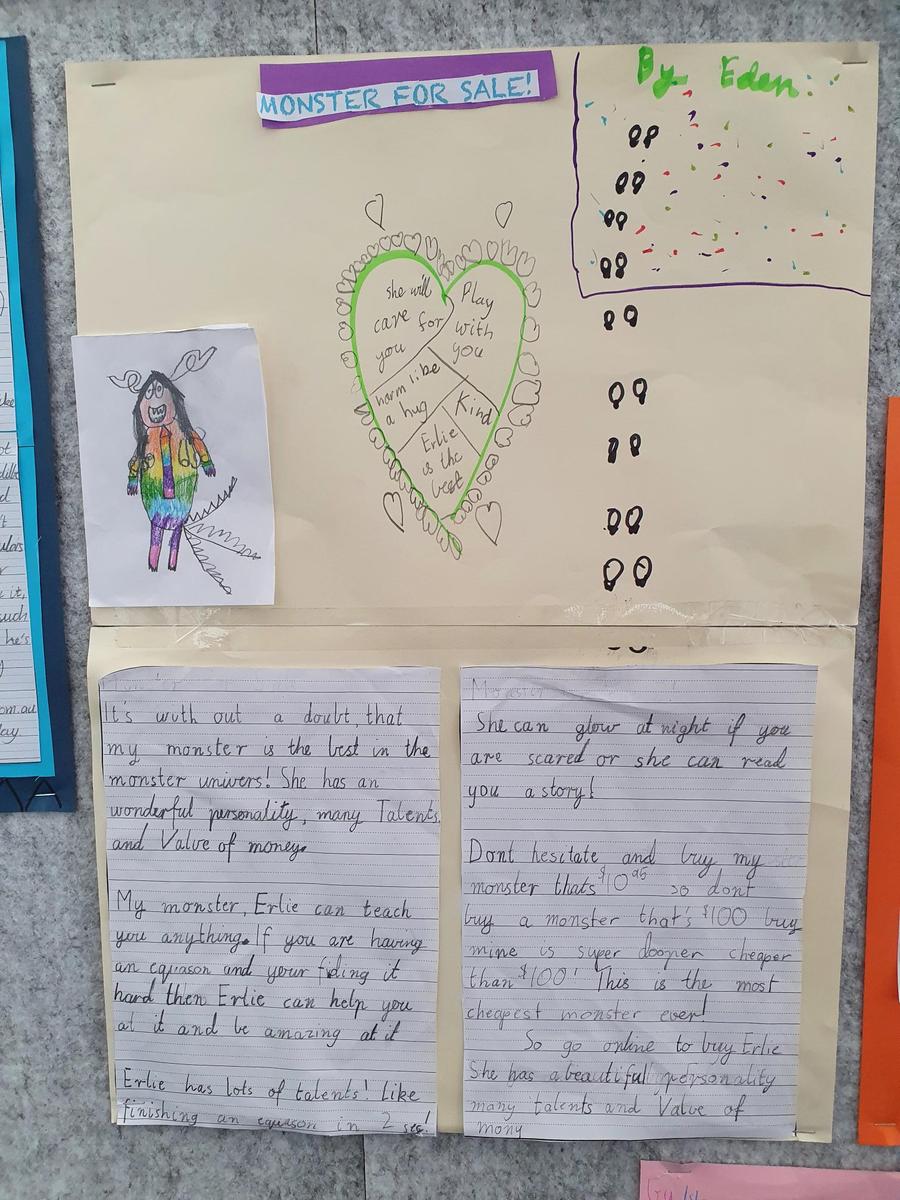 MONSTER FOR SALE!
By Eden:
she will
care for
you
Play
with
you
warm like
a hug
Kind
Erlie
is the
best
It's with out a doubt, that
my monster is the best in the
monster univers! She has an
wonderful personality, many Talents,
and Value of money.
My monster, Erlie can teach
you anything. If you are having
an equason and your fiding it
hard then Erlie can help you
at it and be amazing at it
Erlie has lots of talents! Like
finishing an equason in 2 secs!
Monster
She can glow at night if you
are scared or she can read
you a story!
Dont hesitate and buy my
monster thats $10 so dont
buy a monster that's $100 buy
mine is super dooper cheaper
than $100! This is the most
cheapest monster ever!
So go online to buy Erlie
She has a beautiful personality
many talents and Value of
mony
such
he's
om.au
lay